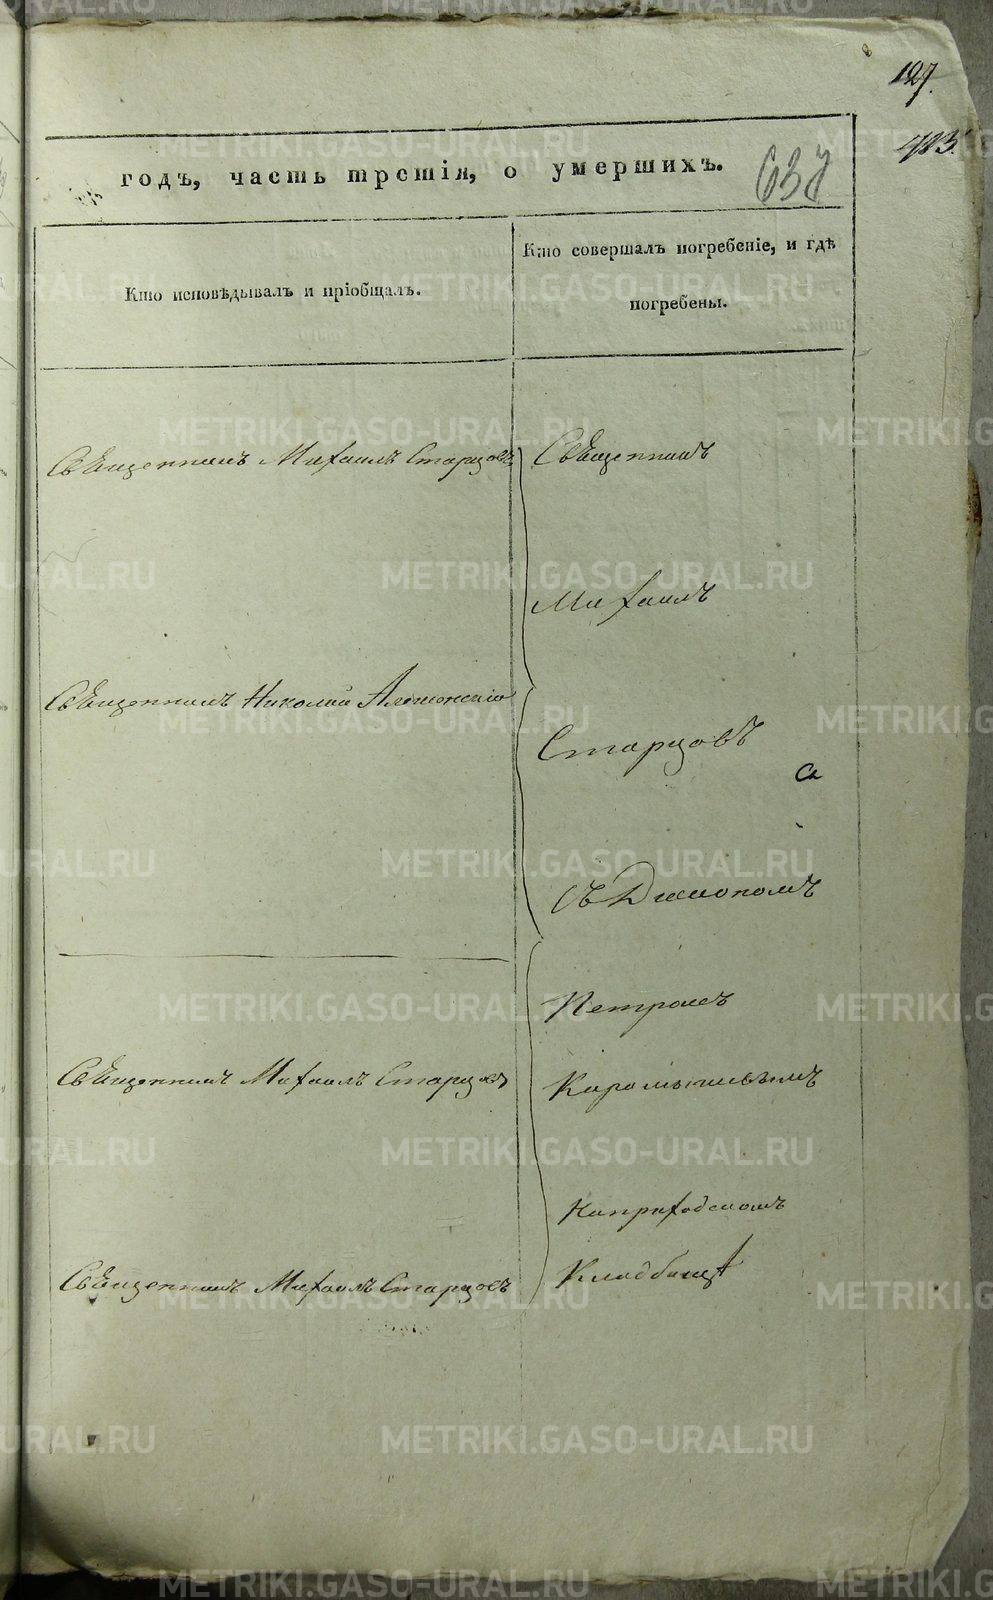 127.
423.
годъ, часть третія, о умершихъ.
637
Кто исповѣдывалъ и пріобщалъ.
Кто совершалъ погребеніе, и гдѣ
погребены.
Священникъ Михаилъ Старцовъ
Священникъ
Михаилъ
Священникъ Николай
Старцовъ
Съ Дьякономъ
Петромъ
Священникъ Михаилъ Старцовъ
Карамышевымъ
Наприходскомъ
Священникъ Михаилъ Старцовъ
Кладбищѣ
METRIKI.GASO-URAL.RU